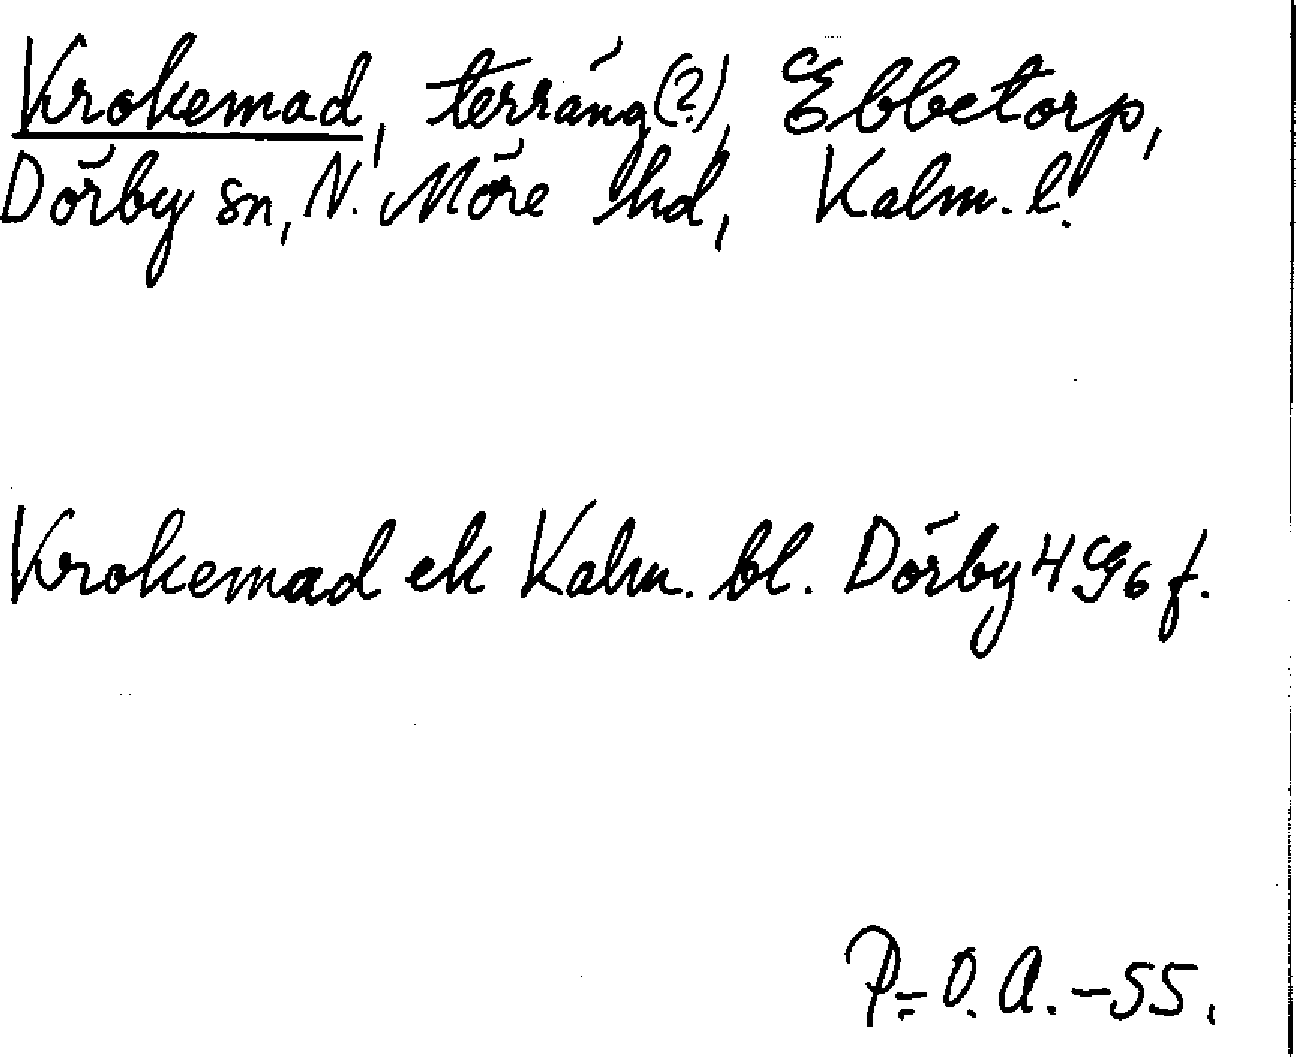 Krokemad, terräng(?), Ebbetorp,
Dörby sn, N. Möre hd, Kalm. l.
Krokemad ek Kalm. bl. Dörby 4 G6 f.
P.-O. A. -55.